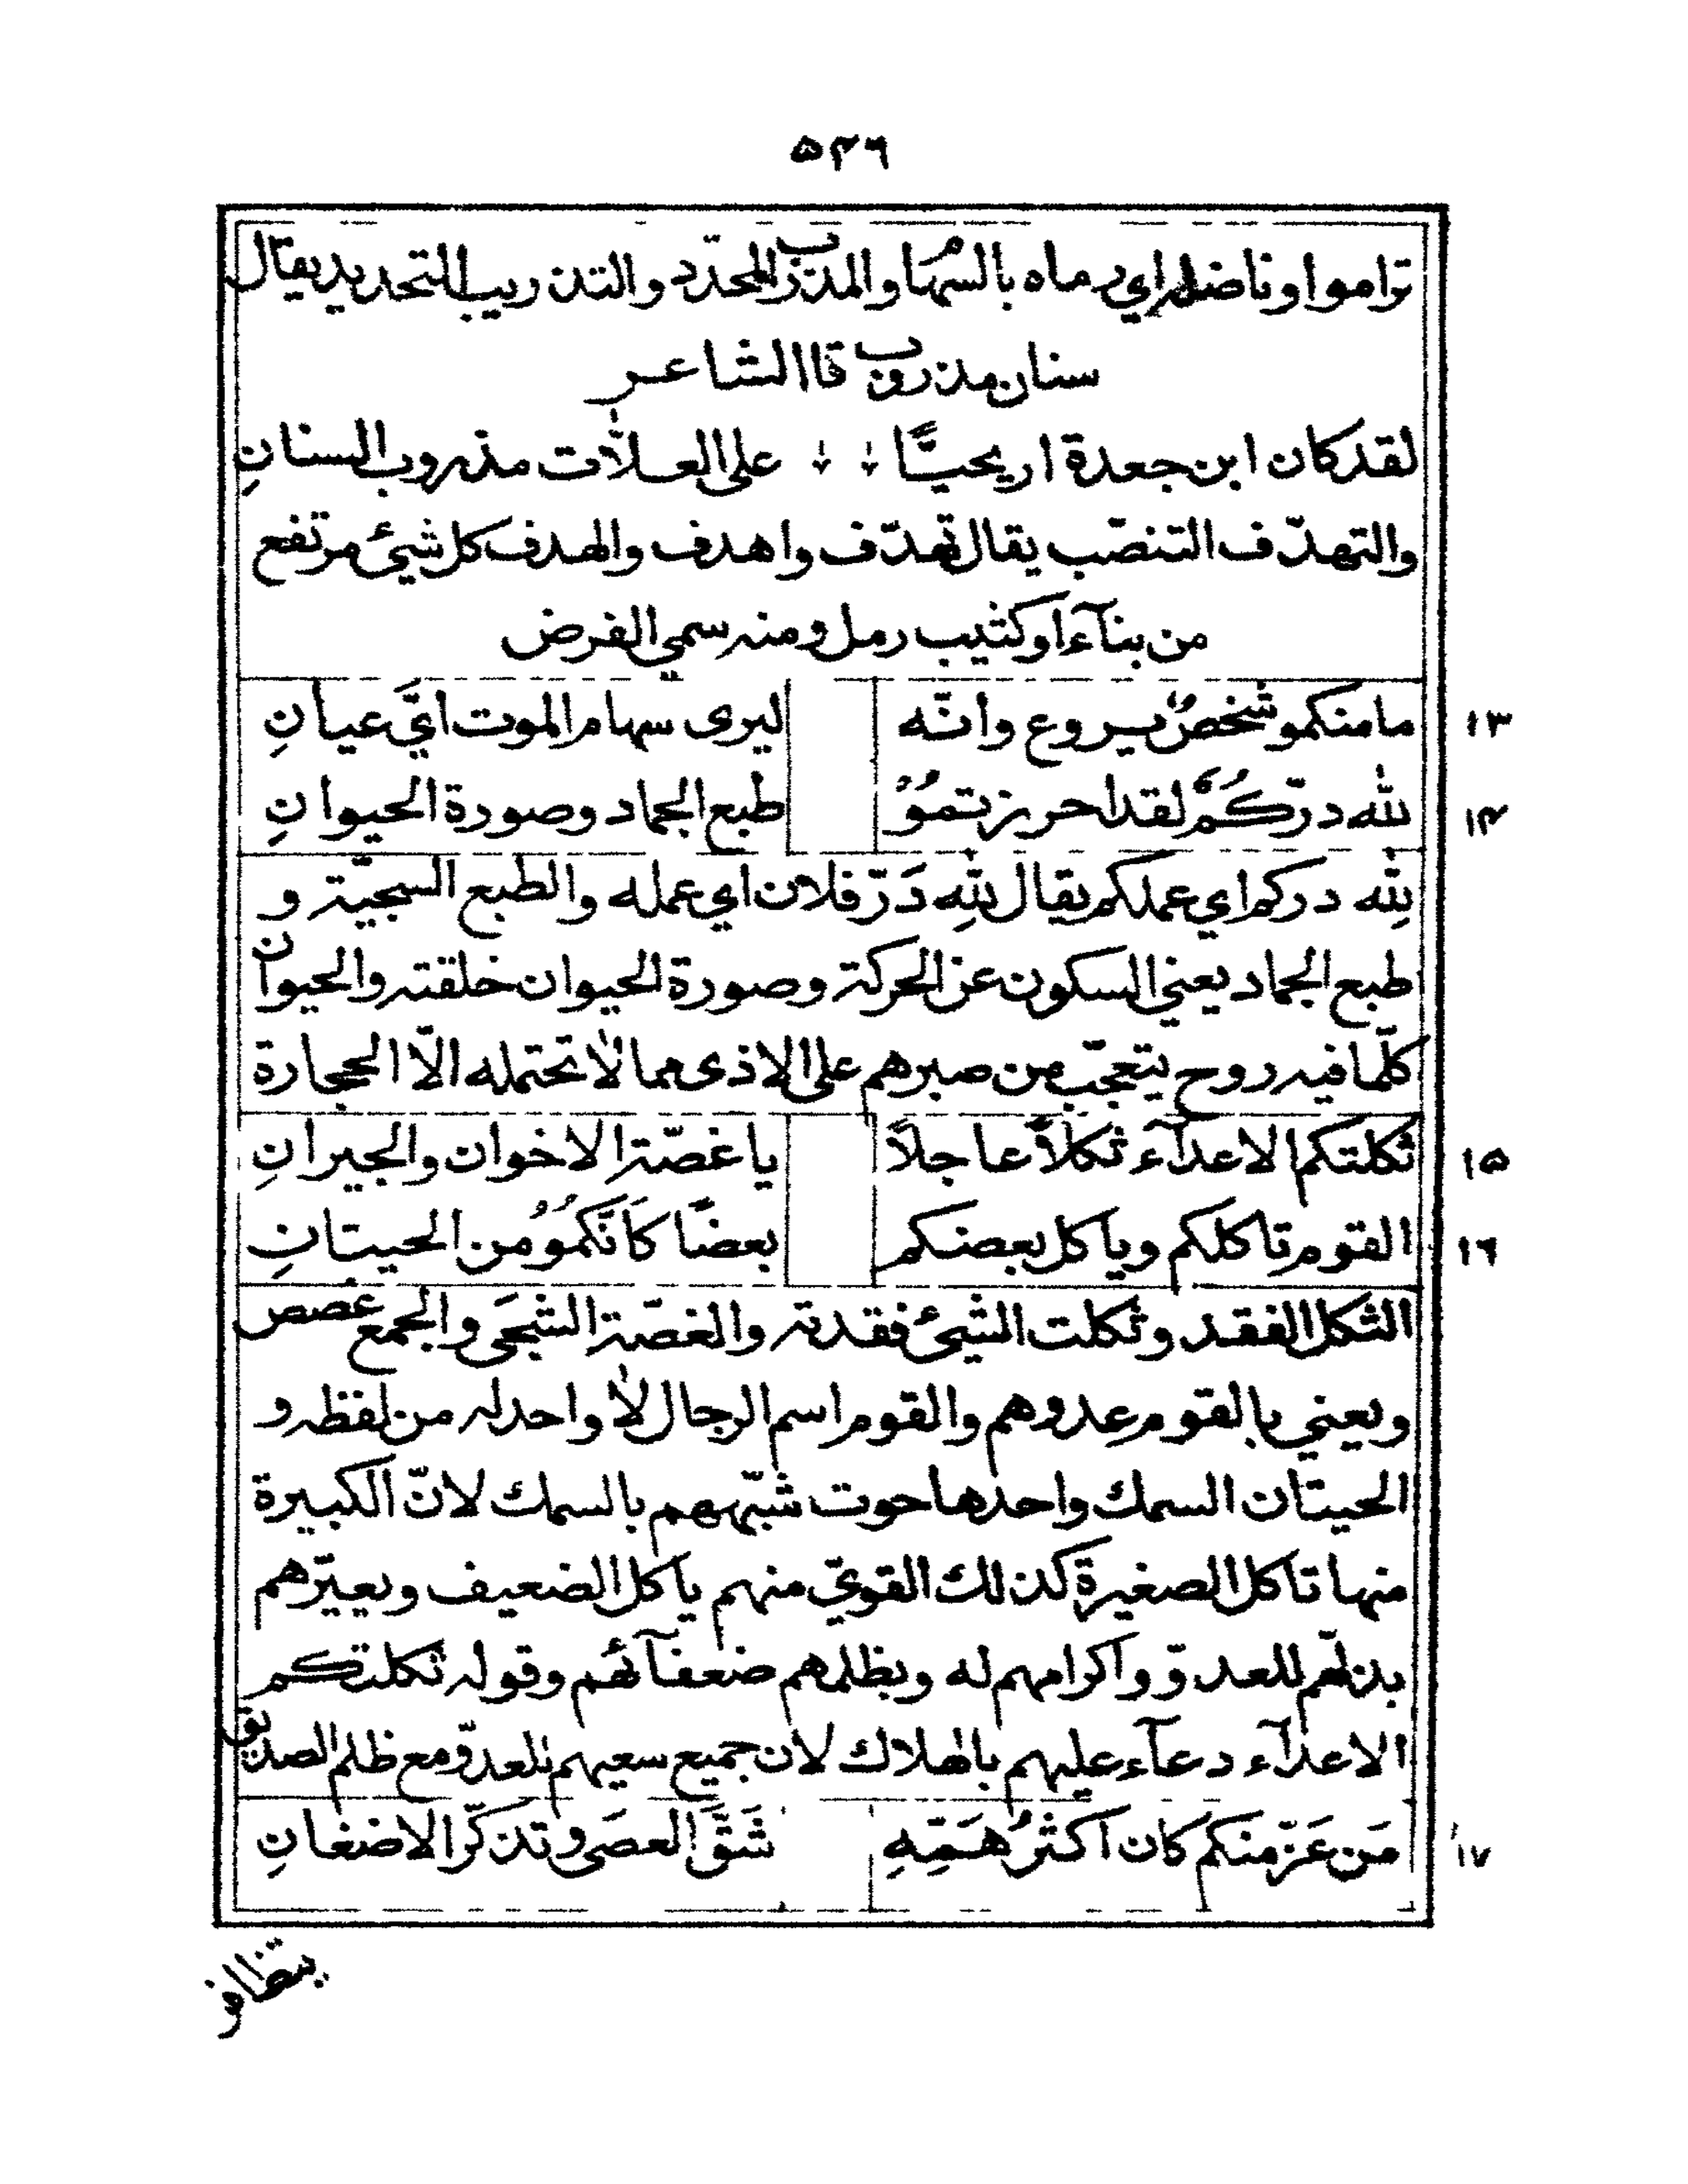 ٥٤٦
تراموا وناضله اي رماه بالسهام والمذرّب المحدّد والتذريب التحديد يقال
سنان مذروب قال الشاعر
لقد كان ابن جعدة اريحيًّا على العلّات مذروب السنانِ
والتهدّف التنصّب يقال تهدّف واهدف والهدف كل شيئ مرتفع
من بنآء اوكثيب رمل ومنه سمي الغرض
١٣ مامنكمو شخصٌ يروع وانّه ليرى سهام الموت ايّ عيانِ
١٤ لله درّكُمُ لقد احرزتمُوُ طبع الجماد وصورة الحيوانِ
لله دركم اي عملكم يقال لله دَرّ فلان اي عمله والطبع السجيّة و
طبع الجماد يعني السكون عن الحركة وصورة الحيوان خلقته والحيوان
كلّما فيه روح يتعجّب من صبرهم على الاذى مما لا تحتمله الّا الحجارة
١٥ ثكلتكم الاعدآء ثكلاً عاجلاً يا غصّة الاخوان والجيرانِ
١٦ القوم تاكلكم وياكل بعضكم بعضًا كَانّكمُوُ من الحيتانِ
الثكل الفقد وثكلت الشيئ فقدته والغصّة الشجى والجمع غصص
ويعني بالقوم عدوهم والقوم اسم الرجال لا واحد له من لفظه و
الحيتان السمك واحدها حوت شبّههم بالسمك لانّ الكبيرة
منها تاكل الصغيرة كذلك القويّ منهم ياكل الضعيف ويعيّرهم
بذلّهم للعدوّ واكرامهم له وبظلمهم ضعفآئهم وقوله ثكلتكم
الاعدآء دعآء عليهم بالهلاك لان جميع سعيهم للعدوّ مع ظلم الصديق
١٧ مَن عَزّ منكم كان اكثرُ هَمّهِ شَقَّ العصَى وتذكّر الاضغانِ